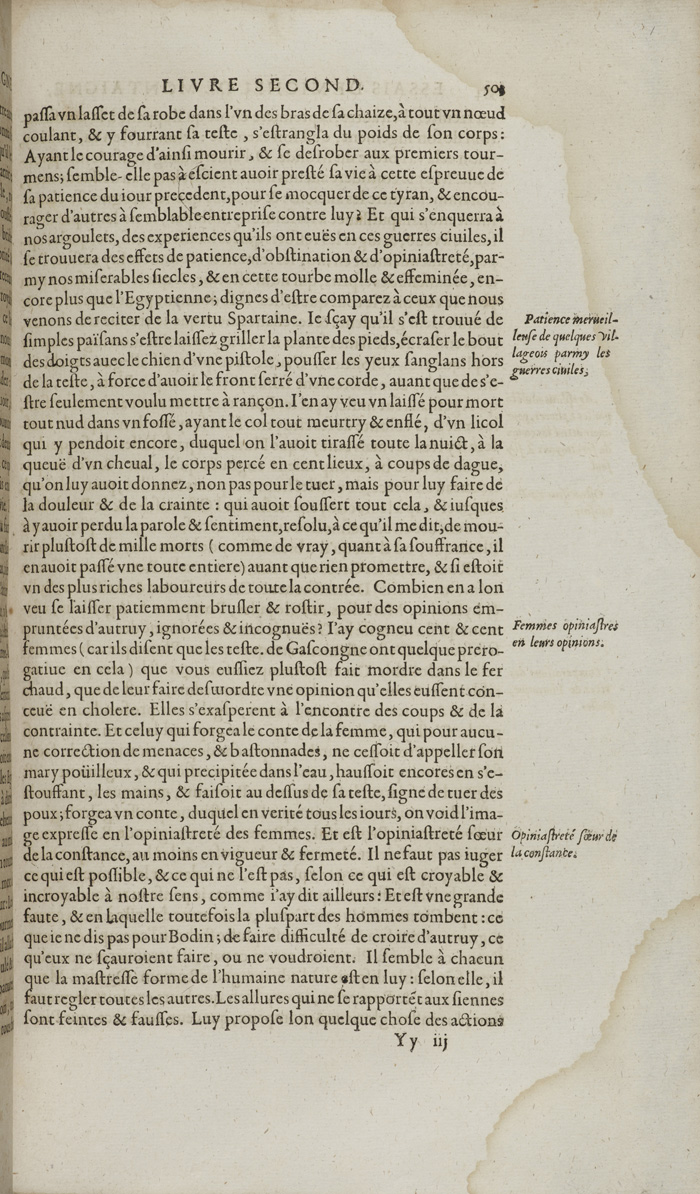 LIVRE SECOND. 503
paſſa vn laſſet de ſa robe dans l'vn des bras de ſa chaize, à tout vn nœud
coulant, & y fourrant ſa teſte, s'eſtrangla du poids de ſon corps:
Ayant le courage d'ainſi mourir, & ſe deſrober aux premiers tour-
mens; ſemble-elle pas à eſcient auoir preſté ſa vie à cette eſpreuue de
ſa patience du iour precedent, pour ſe mocquer de ce tyran, & encou-
rager d'autres à ſemblable entrepriſe contre luy? Et qui s'enquerra à
nos argoulets, des experiences qu'ils ont euës en ces guerres ciuiles, il
ſe trouuera des effets de patience, d'obſtination & d'opiniaſtreté, par-
my nos miſerables ſiecles, & en cette tourbe molle & effeminée, en-
core plus que l'Egyptienne; dignes d'eſtre comparez à ceux que nous
venons de reciter de la vertu Spartaine. Ie ſçay qu'il s'eſt trouué de
ſimples païſans s'eſtre laiſſez griller la plante des pieds, écraſer le bout
des doigts auec le chien d'vne piſtole, pouſſer les yeux ſanglans hors
de la teſte, à force d'auoir le front ſerré d'vne corde, auant que de s'e-
ſtre ſeulement voulu mettre à rançon. I'en ay veu vn laiſſé pour mort
tout nud dans vn foſſé, ayant le col tout meurtry & enflé, d'vn licol
qui y pendoit encore, duquel on l'auoit tiraſſé toute la nuict, à la
queuë d'vn cheual, le corps percé en cent lieux, à coups de dague,
qu'on luy auoit donnez, non pas pour le tuer, mais pour luy faire de
la douleur & de la crainte : qui auoit ſouffert tout cela, & iuſques
à y auoir perdu la parole & ſentiment, reſolu, à ce qu'il me dit, de mou-
rir pluſtoſt de mille morts ( comme de vray, quant à ſa ſouffrance, il
en auoit paſſé vne toute entiere) auant que rien promettre, & ſi eſtoit
vn des plus riches laboureurs de toute la contrée. Combien en a lon
veu ſe laiſſer patiemment bruſler & roſtir, pour des opinions em-
pruntées d'autruy, ignorées & incognuës? I'ay cogneu cent & cent
femmes ( car ils diſent que les teſte. de Gaſcongne ont quelque prero-
gatiue en cela ) que vous euſſiez pluſtoſt fait mordre dans le fer
chaud, que de leur faire deſmordre vne opinion qu'elles euſſent con-
ceuë en cholere. Elles s'exaſperent à l'encontre des coups & de la
contrainte. Et celuy qui forgea le conte de la femme, qui pour aucu-
ne correction de menaces, & baſtonnades, ne ceſſoit d'appeller ſon
mary poüilleux, & qui precipitée dans l'eau, hauſſoit encores en s'e-
ſtouffant, les mains, & faiſoit au deſſus de ſa teſte, ſigne de tuer des
poux; forgea vn conte, duquel en verité tous les iours, on void l'ima-
ge expreſſe en l'opiniaſtreté des femmes. Et eſt l'opiniaſtreté ſœur
de la conſtance, au moins en vigueur & fermeté. Il ne faut pas iuger
ce qui eſt poſſible, & ce qui ne l'eſt pas, ſelon ce qui eſt croyable &
incroyable à noſtre ſens, comme i'ay dit ailleurs: Et eſt vne grande
faute, & en laquelle toutefois la pluſpart des hommes tombent: ce
que ie ne dis pas pour Bodin; de faire difficulté de croire d'autruy, ce
qu'eux ne ſçauroient faire, ou ne voudroient. Il ſemble à chacun
que la maſtreſſe forme de l'humaine nature eſt en luy: ſelon elle, il
faut regler toutes les autres. Les allures qui ne ſe rapportẽt aux ſiennes
ſont feintes & fauſſes. Luy propoſe lon quelque choſe des actions
Yy iij
Patience merueil-
leuſe de quelques vil-
lageois parmy les
guerres ciuiles.
Femmes opiniaſtres
en leurs opinions.
Opiniaſtreté ſœur de
la conſtance.